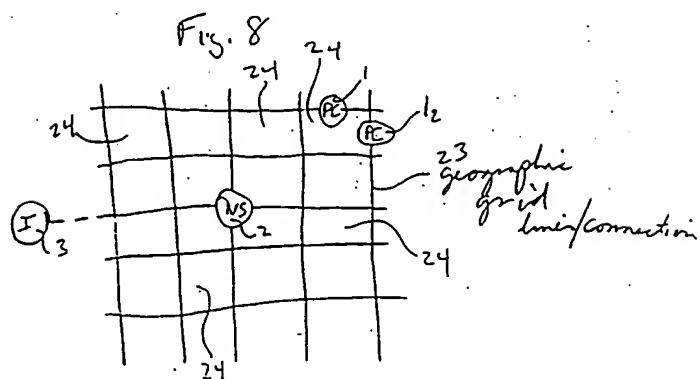 Fig. 8
24
24
1
24
PC
PC
12
23
geographic
grid
lines/connection
I
3
NS
2
24
24